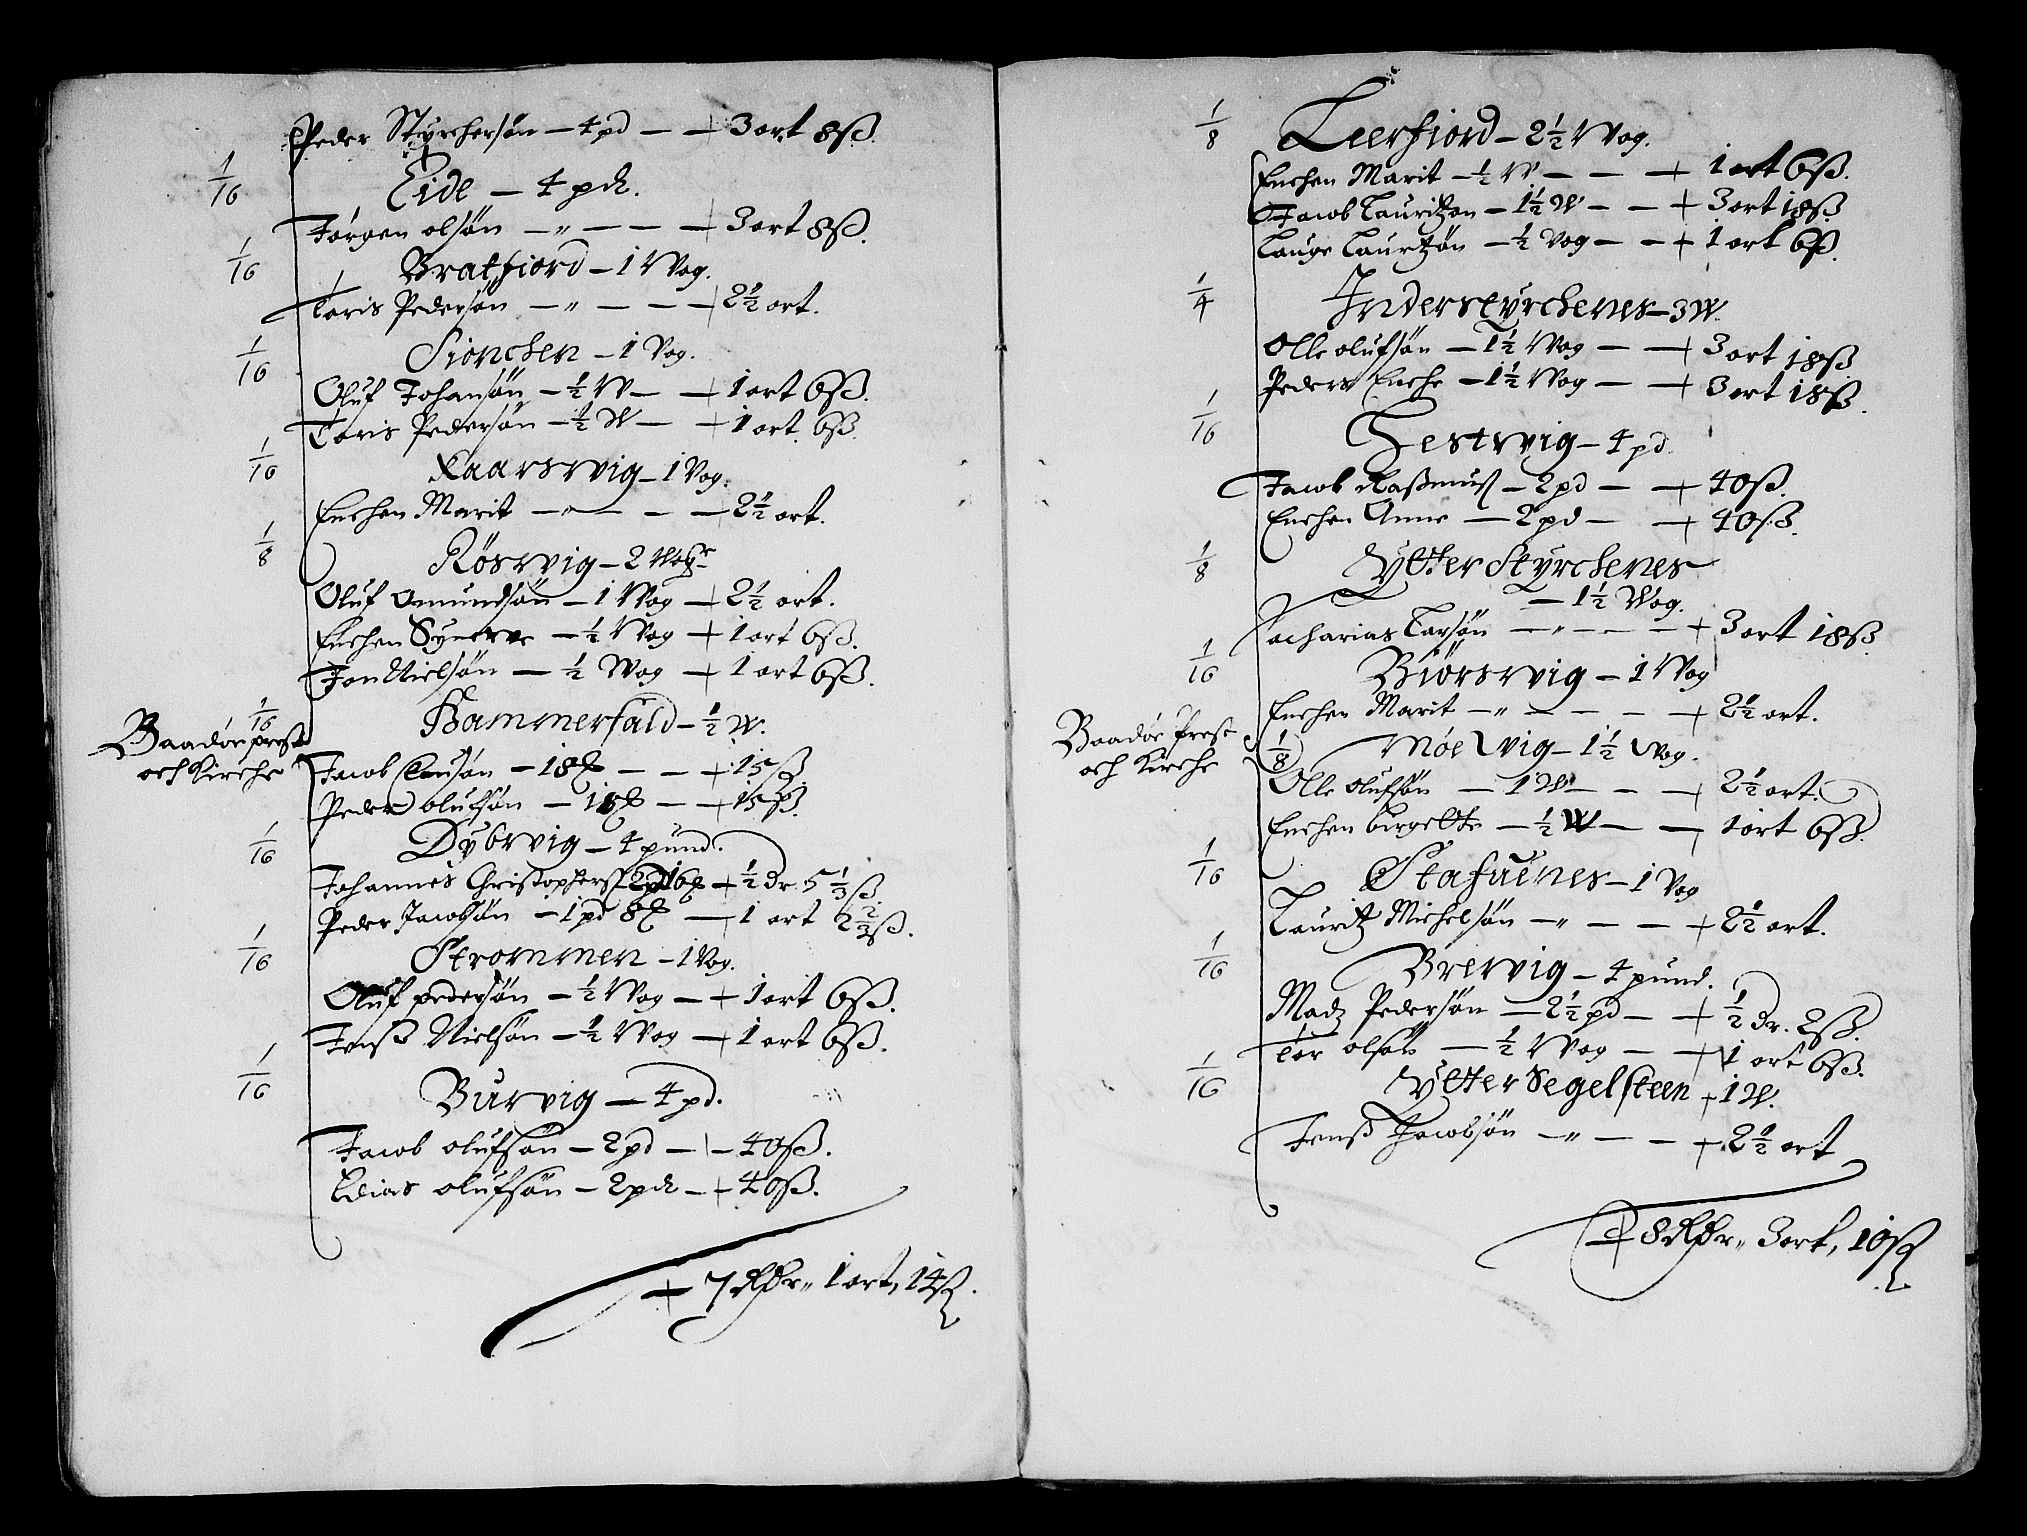 Peder Styrchersøn – 4 pd – – + 3 ort 8 ß.
1/16 Eide – 4 pd.
Jørgen olsøn – „ – – – + 3 ort 8 ß.
1/16 Bratfiord – 1 Wog.
Toris Pedersøn – „ – – – + 2½ ort.
1/16 Sionchen – 1 Vog.
Oluf Johansøn – ½ W – – + 1 ort 6 ß.
Toris Pedersøn – ½ W – – + 1 ort. 6 ß.
1/16 Kaarsvig – 1 Vog.
Enchen Marit – „ – – – 2½ ort.
1/8 Røsvig – 2 Wogr
Oluf Omundsøn – 1 Wog – + 2½ ort.
Enchen Synerve – ½ Wog – + 1 ort 6 ß.
Jon Nielsøn – ½ Wog – + 1 ort 6 ß.
1/16 Hammerfald – ½ W.
Baadøe prest
och Kirche
Jacob Clausøn – 18 ℔ – – + 15 ß.
Peder olufsøn – 18 ℔ – + 15 ß.
1/16 Dybvig – 4 pund.
Johannes Christophers 2pd 16 ℔ + ½ dr. 5 1/3 ß
Peder Jacobsøn – 1 pd 8 ℔ – 1 ort 2 2/3 ß.
1/16 Strommen – 1 Vog.
Oluf pedersøn – ½ Wog – + 1 ort 6 ß.
Jenß Nielsøn – ½ Wog – + 1 ort 6 ß.
1/16 Burvig – 4 pd.
Jacob olufsøn – 2 pd – + 40 ß.
Elias olufsøn – 2 pd – + 40 ß.
+ 7 Rdr „ 1 ort, 14 ß.
1/8 Leerfiord – 2½ Wog.
Enchen Marit – ½ W – – + 1 ort 6 ß.
Jacob Lauritzøn – 1½ W – – + 3 ort 18 ß.
Lauge Lauritzøn – ½ Vog – – + 1 ort 6 ß.
1/4 Inderstyrchenes – 3 W.
Olle olufsøn – 1½ Wog – + 3 ort 18 ß
Peders Enche – 1½ Wog – + 3 ort 18 ß.
1/16 Hestvig – 4 pd.
Jacob Raßmuß – 2 pd – + 40 ß.
Enchen Anne – 2 pd – + 40 ß.
1/8 Ytter Styrchenes
– 1½ Wog.
Zacharias Larsøn – „ – – + 3 ort 18 ß.
1/16 Biørsvig – 1 Wog
Enchen Marit – „ – – – + 2½ ort.
Baadøe Prest
och Kirche
1/8 Møelvig – 1½ Vog.
Olle olufsøn – 1 W – – + 2½ ort.
Enchen birgette – ½ W – – 1 ort 6 ß.
1/16 Stafuenes – 1 Vog
Lauritz Michelsøn – „ – – + 2½ ort.
1/16 Brevig – 4 pund.
Madz Pedersøn – 2½ pd – + ½ dr. 2 ß.
Tor olsøn – ½ Wog – + 1 ort 6 ß.
1/16 Ytter Segelsteen + 1 W.
Jenß Jacobsøn – „ – – + 2½ ort
+ 8 Rdr „ 3 ort, 10 ß